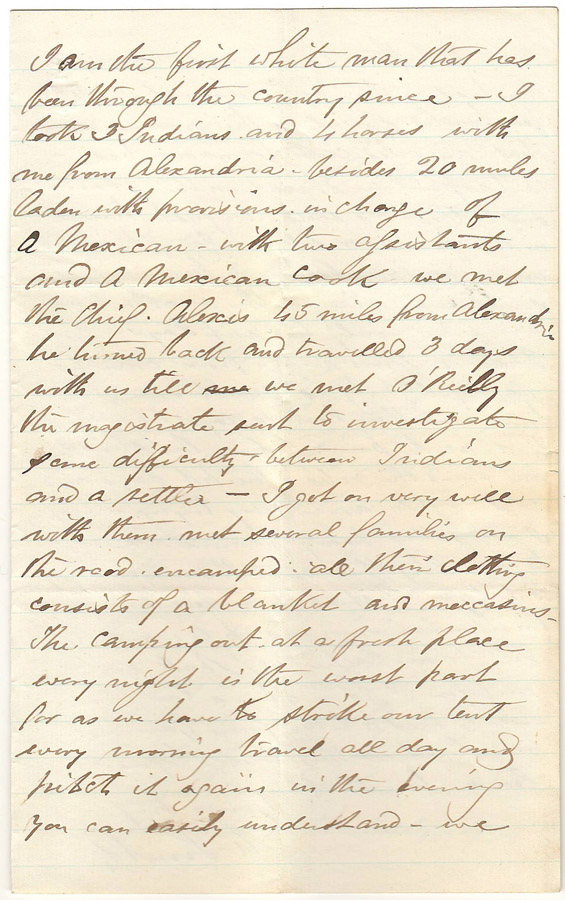 I am the first white man that has
been through the country since – I
took 3 Indians and 4 horses with
me from Alexandria – besides 20 mules
laden with provisions. in charge of
A Mexican – with two assistants
and A Mexican cook we met
the Chief. Alexis 45 miles from Alexandria
he turned back and travelled 3 days
with us till me we met O'Reilly
the magistrate sent to investigate
some difficulty between Indians
and a settler – I got on very well
with them. met several families on
the road. encamped. all their clothing
consists of a blanket and moccasins –
The camping out. at a fresh place
every night is the worst part
for as we have to strike our tent
every morning travel all day and
pitch it again in the evening
you can easily understand – we